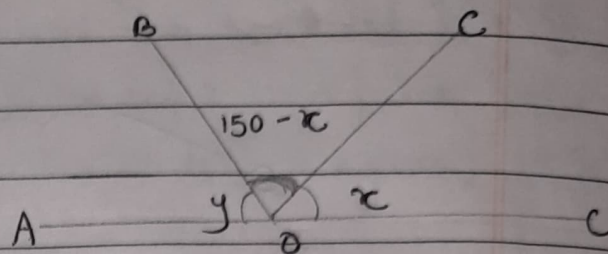 B C
150 - x
y x
A O C